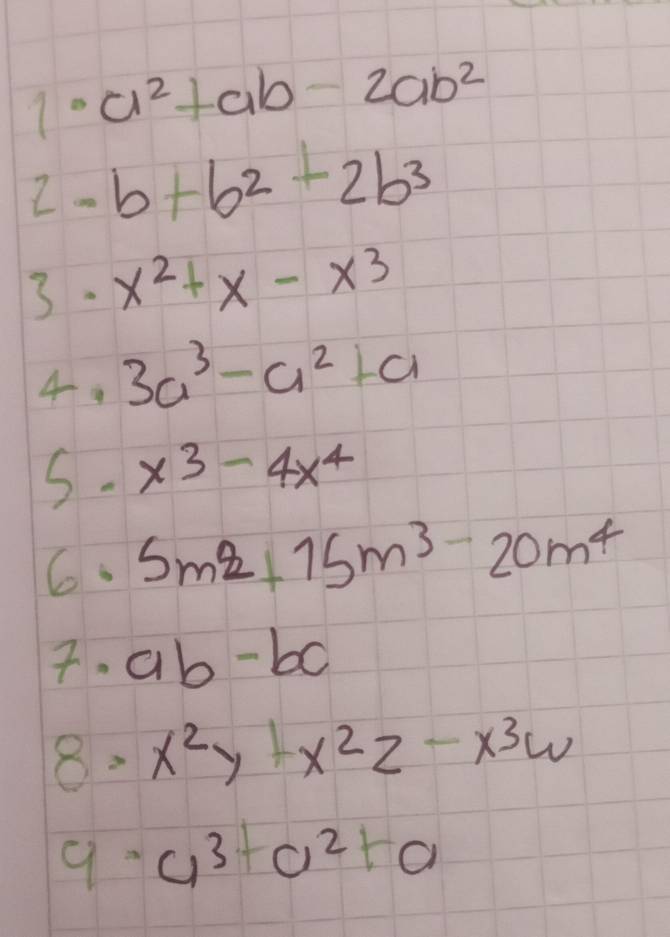 1. a² + ab - 2ab²
2 - b + b² + 2b³
3. x² + x - x³
4. 3a³ - a² + a
5. x³ - 4x⁴
6. 5m2 + 15m³ - 20m⁴
7. ab - bc
8. x²y + x²z - x³w
9. a³ + a² + a